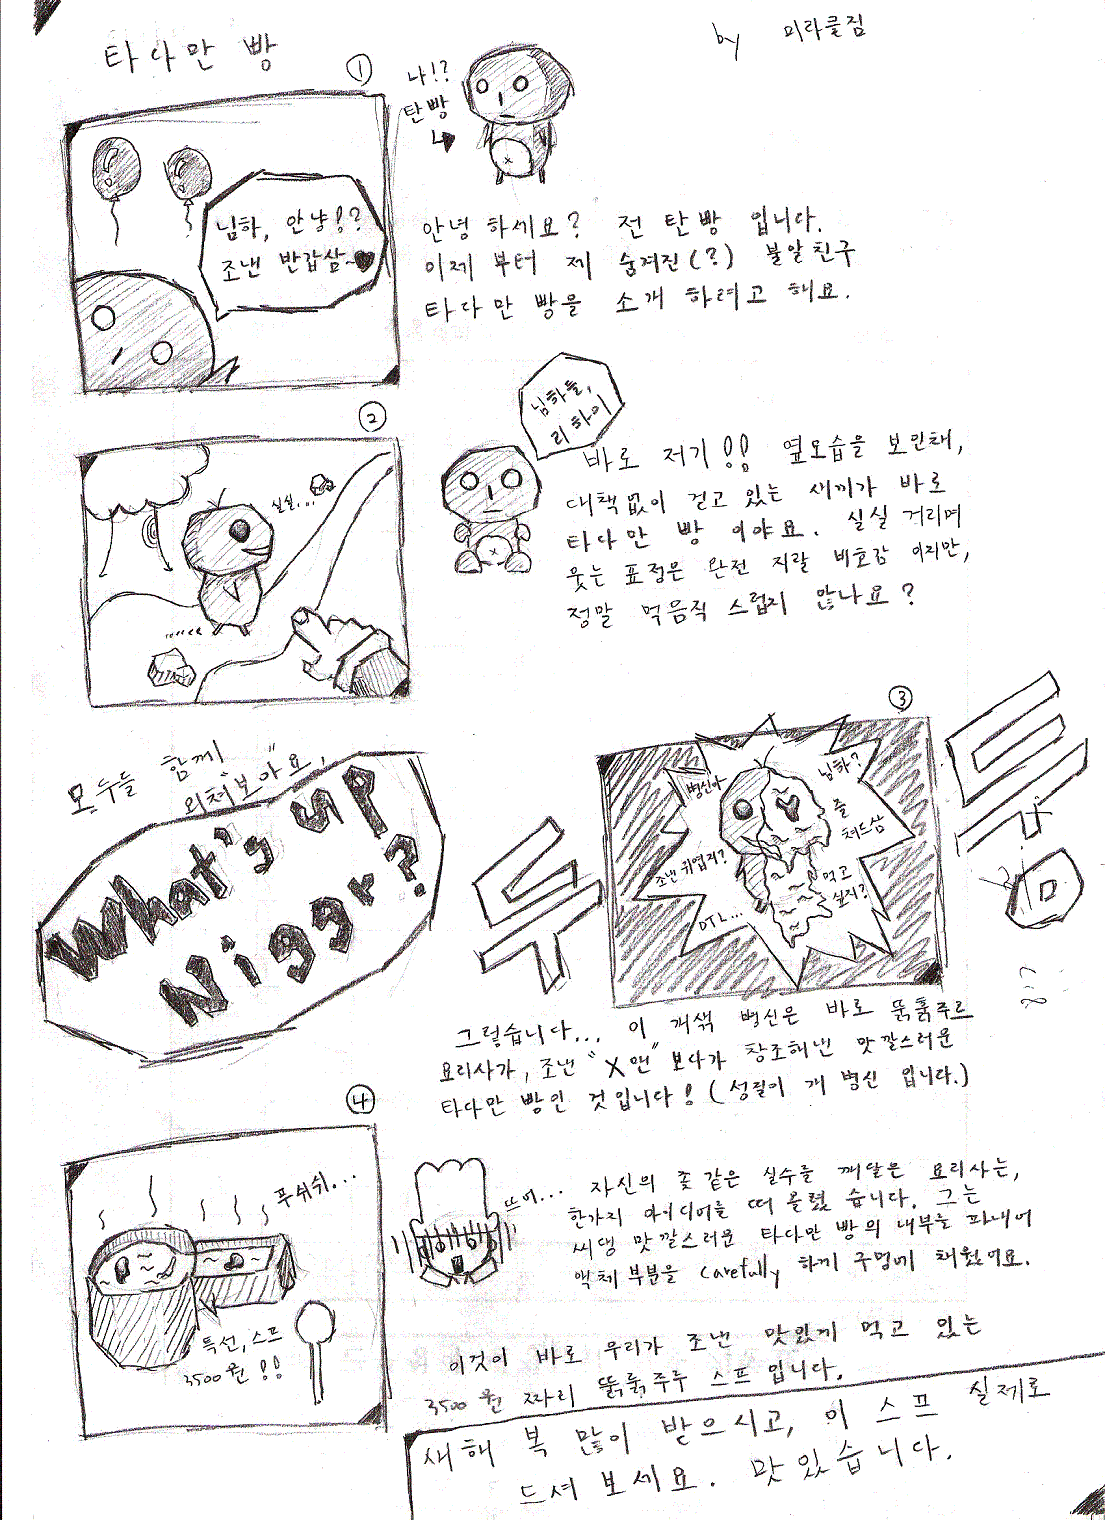 타다만 빵
by 미라클짐
①
나!?
탄빵
님하, 안냥!?
조낸 반갑삼~♥
안녕 하세요? 전 탄빵 입니다.
이제 부터 제 숨겨진(?) 불알친구
타다만 빵을 소개 하려고 해요.
②
실실...
님하들,
리 하이
바로 저기!! 옆모습을 보인채,
대책없이 걷고 있는 새끼가 바로
타다만 빵 이야요. 실실 거리며
웃는 표정은 완전 지랄 비호감 이지만,
정말 먹음직 스럽지 않나요?
모두들 함께
외쳐"보아"요,
What's up
Niggr?
③
두
둥
병신아
님하?
즐
쳐드삼
조낸 귀엽지?
먹고
싶지?
OTL...
그렇습니다... 이 개색 병신은 바로 뚥훍주르
요리사가, 조낸 "X맨" 보다가 창조해낸 맛깔스러운
타다만 빵인 것입니다! (성질이 개 병신 입니다.)
④
푸쉬쉬...
특선, 스프
3500원!!
뜨어...
자신의 좆 같은 실수를 깨달은 요리사는,
한가지 아이디어를 떠 올렸 습니다. 그는
씨댕 맛깔스러운 타다만 빵의 내부를 파내어
액체 부분을 carefully 하게 구멍에 채웠어요.
이것이 바로 우리가 조낸 맛있게 먹고 있는
3500원 짜리 뚥훍주루 스프 입니다.
새해 복 많이 받으시고, 이 스프 실제로
드셔 보세요. 맛있습니다.